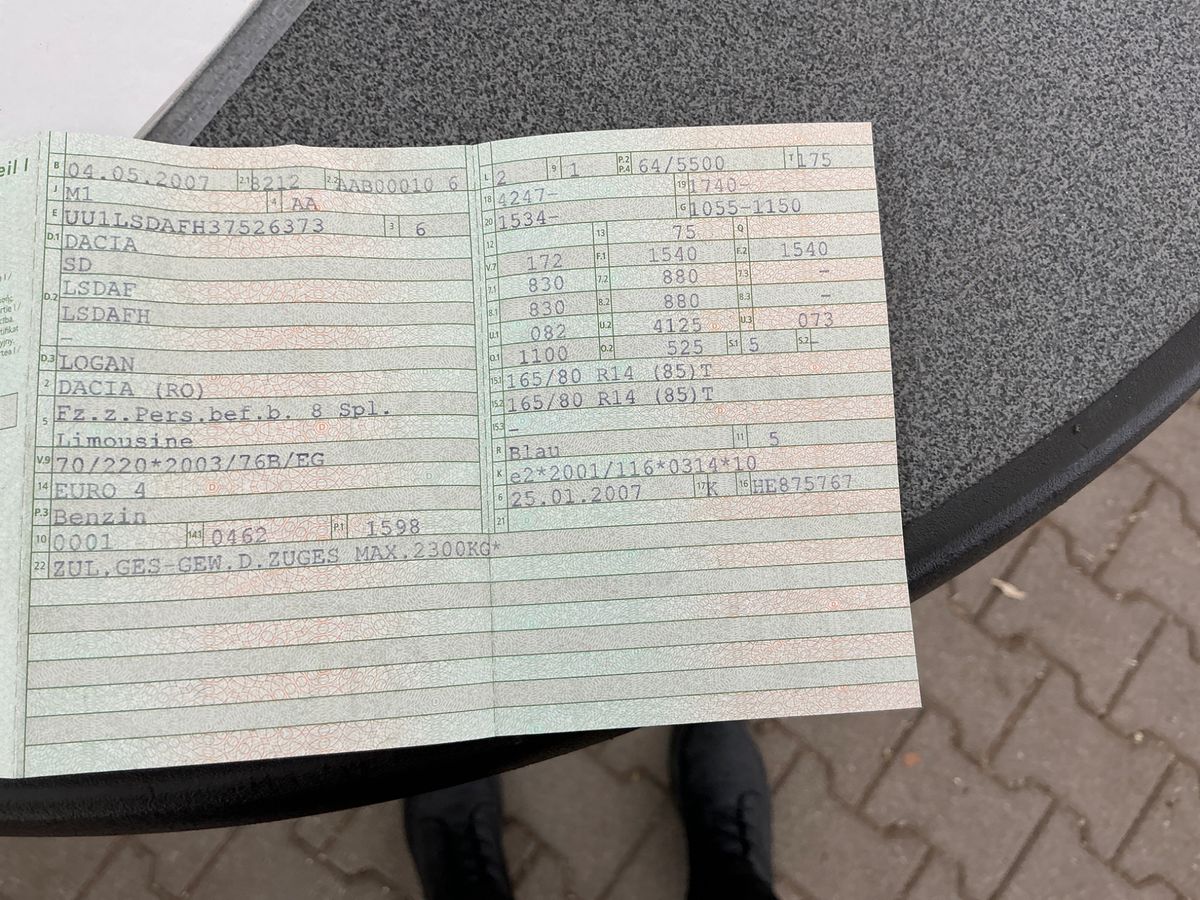 eil I
B 04.05.2007 2.1 8212 2.2 AAB00010 6
J M1 4 AA
E UU1LSDAFH37526373 3 6
D.1 DACIA
SD
D.2 LSDAF
LSDAFH
–
D.3 LOGAN
2 DACIA (RO)
5 Fz.z.Pers.bef.b. 8 Spl.
Limousine
V.9 70/220*2003/76B/EG
14 EURO 4
P.3 Benzin
10 0001 14.1 0462 P.1 1598
22 ZUL.GES-GEW.D.ZUGES MAX.2300KG*
L 2 9 1 P.2 P.4 64/5500 T 175
18 4247- 19 1740-
20 1534- G 1055-1150
12 13 75 Q
V.7 172 F.1 1540 F.2 1540
7.1 830 7.2 880 7.3 –
8.1 830 8.2 880 8.3 –
U.1 082 U.2 4125 U.3 073
O.1 1100 O.2 525 S.1 5 S.2 –
15.1 165/80 R14 (85)T
15.2 165/80 R14 (85)T
15.3 –
R Blau 11 5
K e2*2001/116*0314*10
6 25.01.2007 17 K 16 HE875767
21